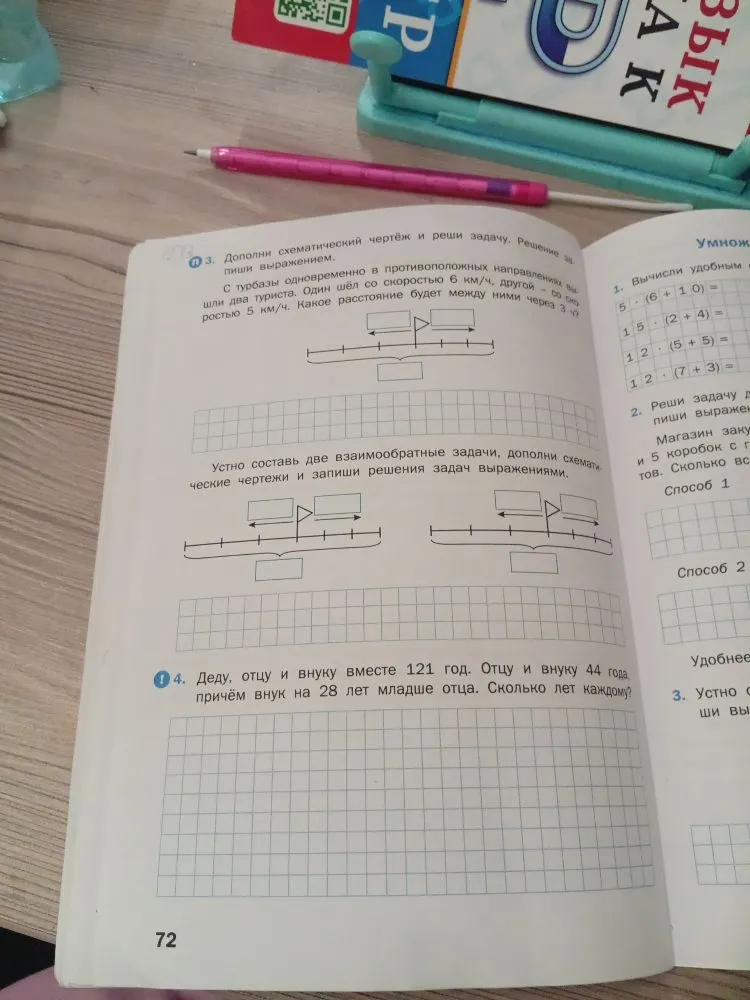 ЗЫК
ТАК
Р
п 3. Дополни схематический чертёж и реши задачу. Решение за-
пиши выражением.
С турбазы одновременно в противоположных направлениях вы-
шли два туриста. Один шёл со скоростью 6 км/ч, другой – со ско-
ростью 5 км/ч. Какое расстояние будет между ними через 3 ч?
Устно составь две взаимообратные задачи, дополни схемати-
ческие чертежи и запиши решения задач выражениями.
! 4. Деду, отцу и внуку вместе 121 год. Отцу и внуку 44 года,
причём внук на 28 лет младше отца. Сколько лет каждому?
72
Умнож
1. Вычисли удобным
5 · (6 + 10) =
15 · (2 + 4) =
12 · (5 + 5) =
12 · (7 + 3) =
2. Реши задачу
пиши выраже
Магазин заку
и 5 коробок с г
тов. Сколько вс
Способ 1
Способ 2
Удобнее
3. Устно
ши вы